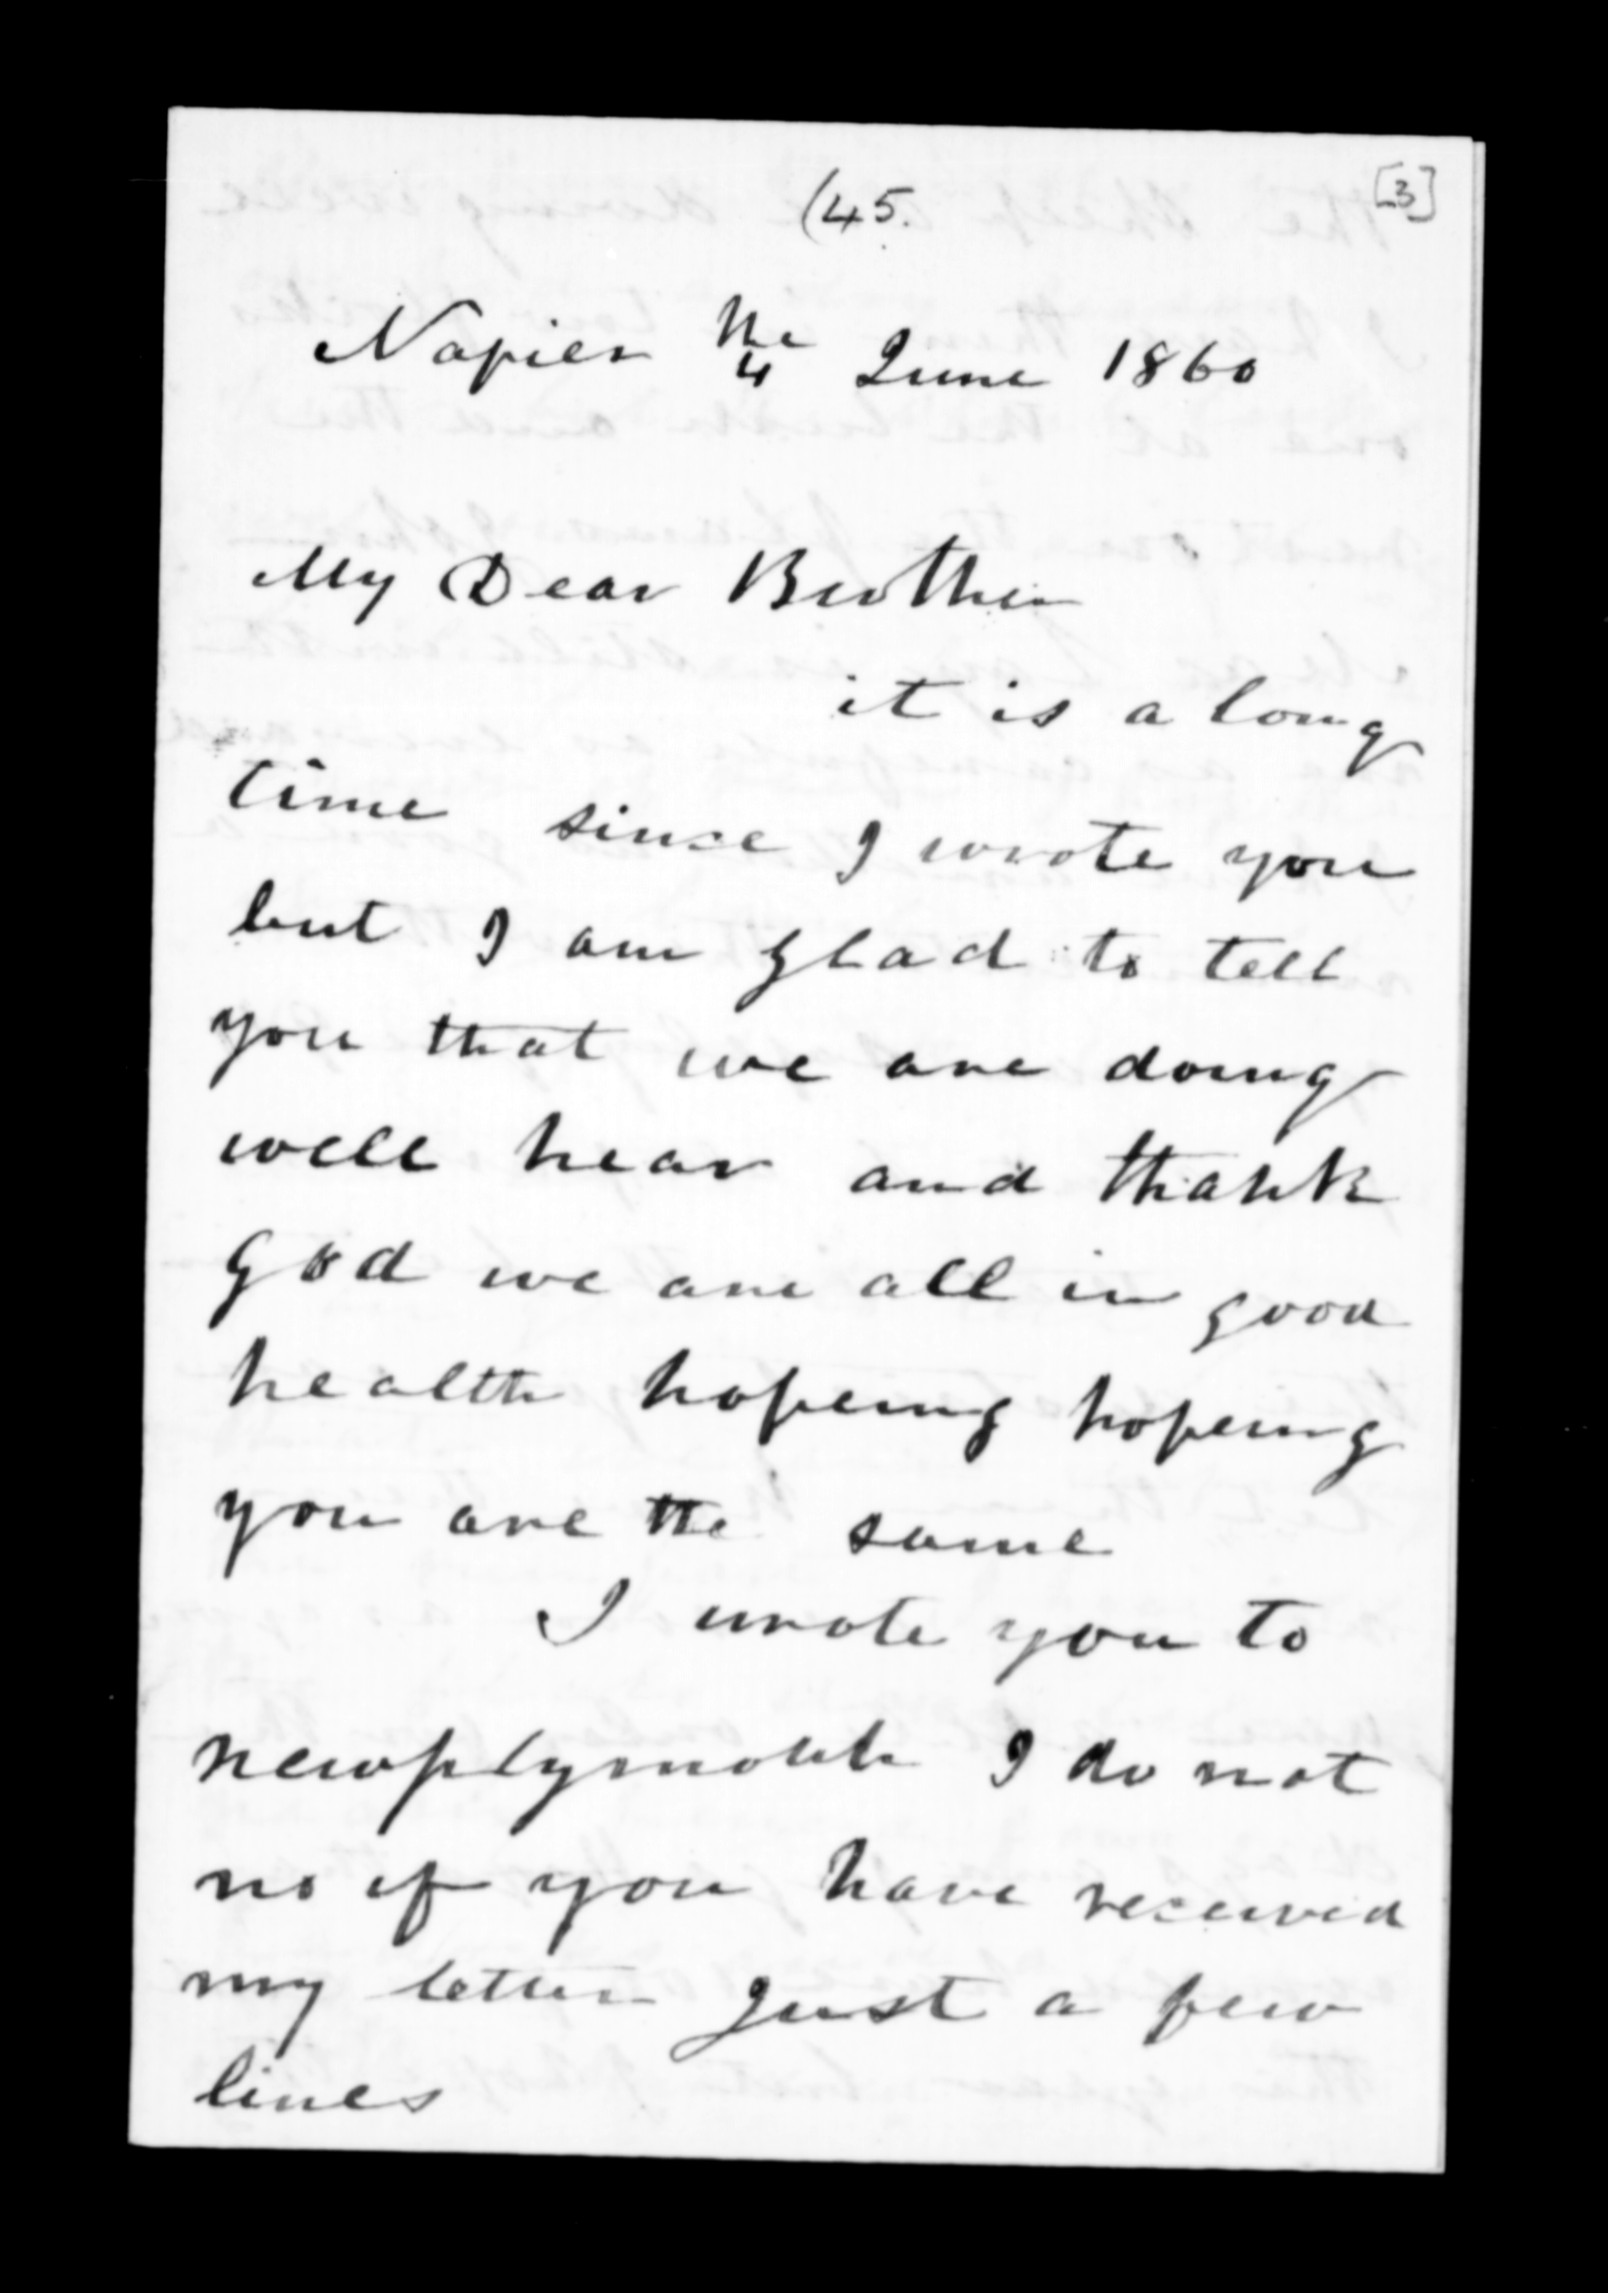 (45.
[3]
Napier the 4 June 1860
My Dear Brother
it is a long
time since I wrote you
but I am glad to tell
you that we are doing
well hear and thank
god we are all in good
health hopeing hopeing
you are the same
I wrote you to
newplymouth I do not
no if you have received
my letter Just a few
lines